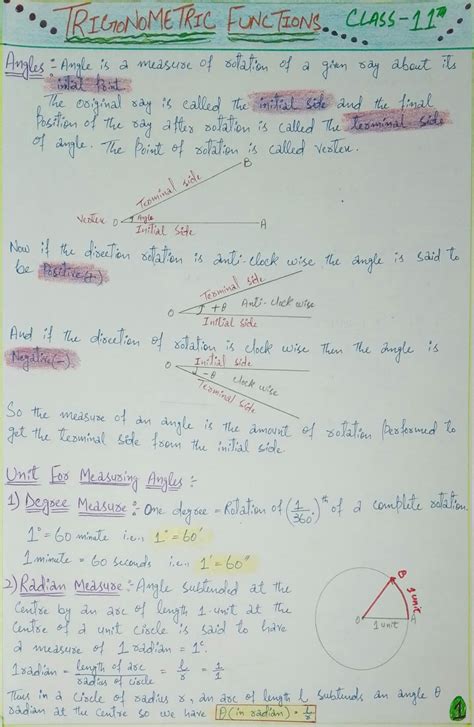 TRIGONOMETRIC FUNCTIONS CLASS-11th
Angles :- Angle is a measure of rotation of a given ray about its
initial point.
The original ray is called the initial side and the final
Position of the ray after rotation is called the terminal side
of angle. The Point of rotation is called vertex.
B
Terminal side
Vertex O Angle A
Initial Side
Now if the direction rotation is anti-clock wise the angle is said to
be Positive(+)
Terminal side
O +θ Anti-clock wise
Initial side
And if the direction of rotation is clock wise then the angle is
Negative(-)
O Initial side
-θ clock wise
Terminal side
So the measure of an angle is the amount of rotation performed to
get the terminal side from the initial side
Unit For Measuring Angles :-
1) Degree Measure :- One degree = Rotation of (1/360)th of a complete rotation.
1° = 60 minute i.e.. 1° = 60'
1 minute = 60 seconds i.e.. 1' = 60"
2) Radian Measure :- Angle subtended at the
Centre by an arc of length 1 unit at the
Centre of a unit circle is said to have
a measure of 1 radian = 1ᶜ
B
1 unit
O 1 unit A
1 radian = length of arc / radius of circle = l/r = 1/1
Thus in a Circle of radius r, an arc of length l subtends an angle θ
radian at the Centre so we have θ(in radian) = l/r
1